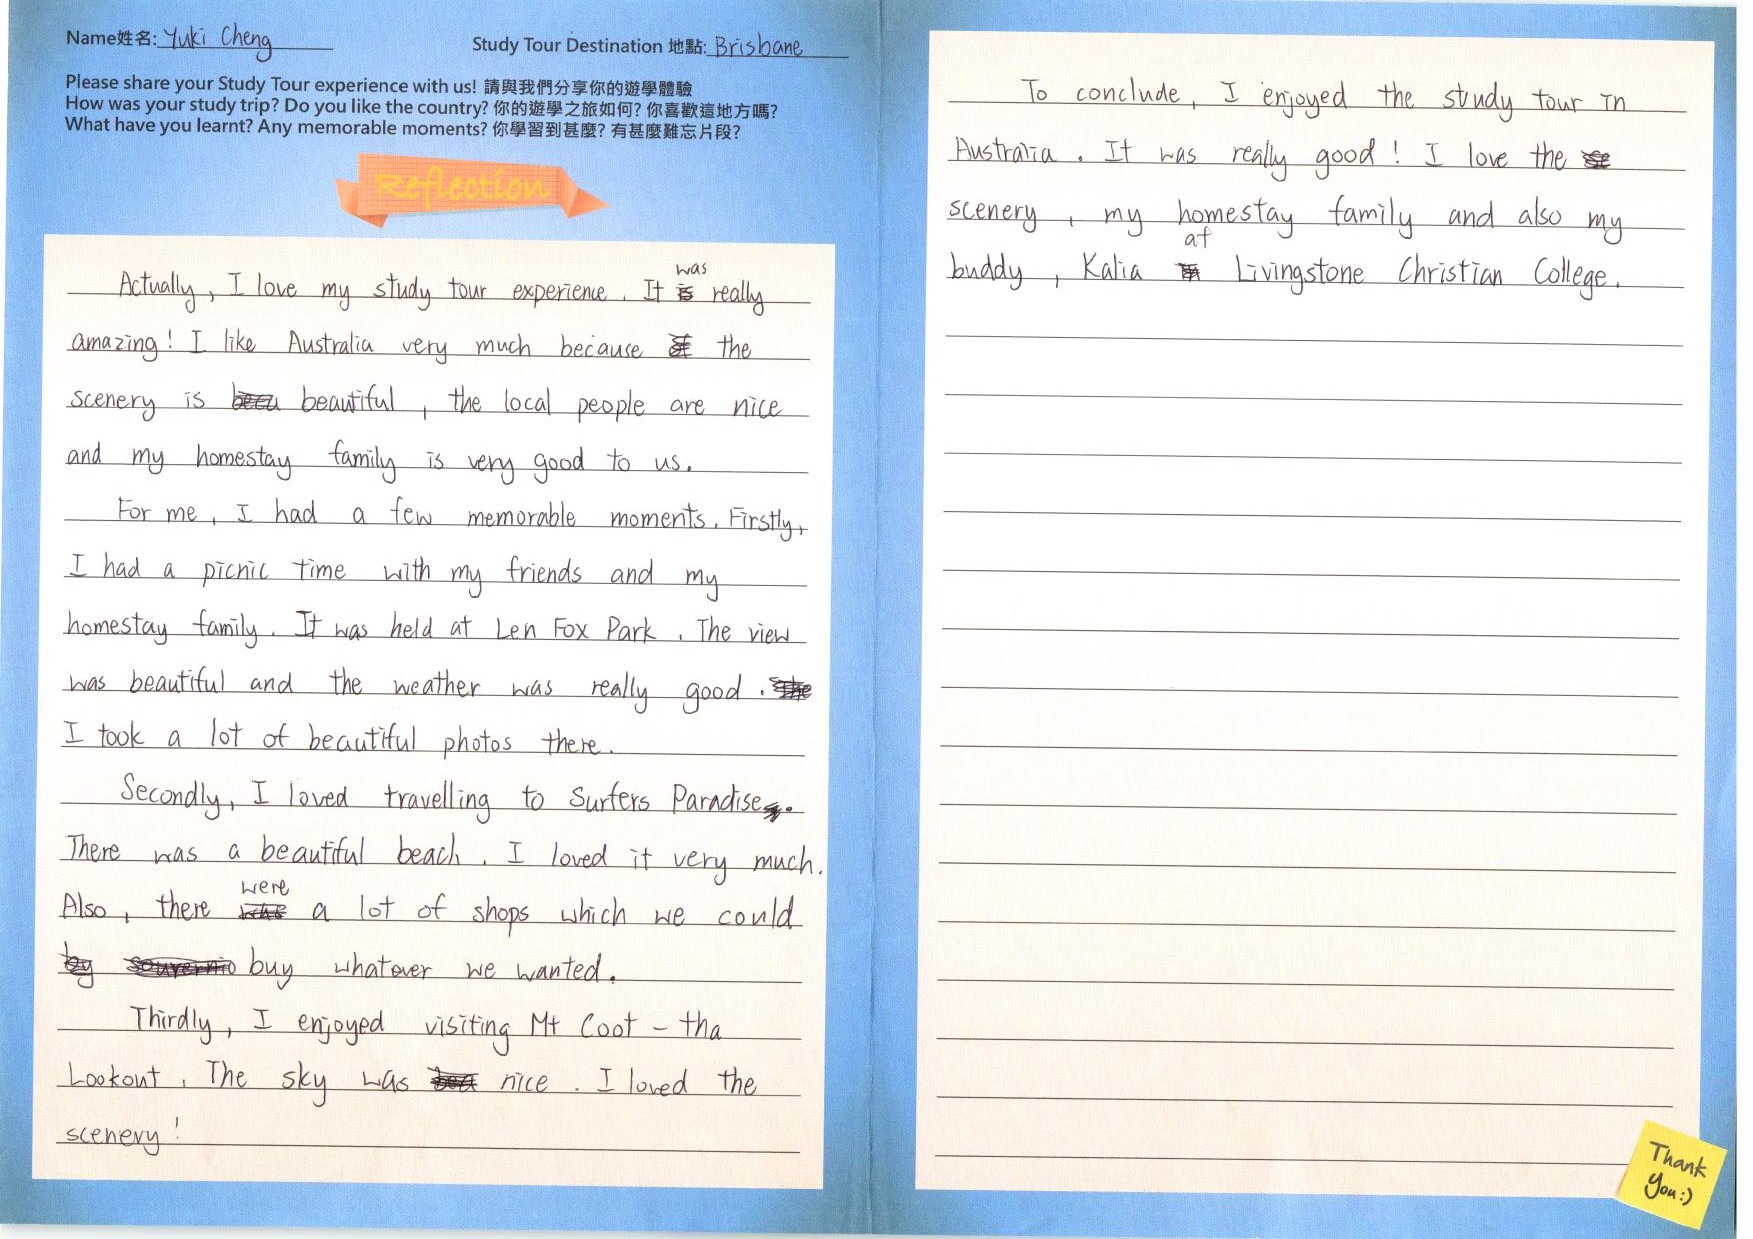 Name姓名: Yuki Cheng
Study Tour Destination 地點: Brisbane
Please share your Study Tour experience with us! 請與我們分享你的遊學體驗
How was your study trip? Do you like the country? 你的遊學之旅如何? 你喜歡這地方嗎?
What have you learnt? Any memorable moments? 你學習到甚麼? 有甚麼難忘片段?
Reflection
Actually, I love my study tour experience. It was really
amazing! I like Australia very much because the
scenery is beautiful, the local people are nice
and my homestay family is very good to us.
For me, I had a few memorable moments. Firstly,
I had a picnic time with my friends and my
homestay family. It was held at Len Fox Park. The view
was beautiful and the weather was really good.
I took a lot of beautiful photos there.
Secondly, I loved travelling to Surfers Paradise.
There was a beautiful beach. I loved it very much.
Also, there were a lot of shops which we could
buy whatever we wanted.
Thirdly, I enjoyed visiting Mt Coot-tha
Lookout. The sky was nice. I loved the
scenery!
To conclude, I enjoyed the study tour in
Australia. It was really good! I love the
scenery, my homestay family and also my
buddy, Kalia at Livingstone Christian College.
Thank
You:)